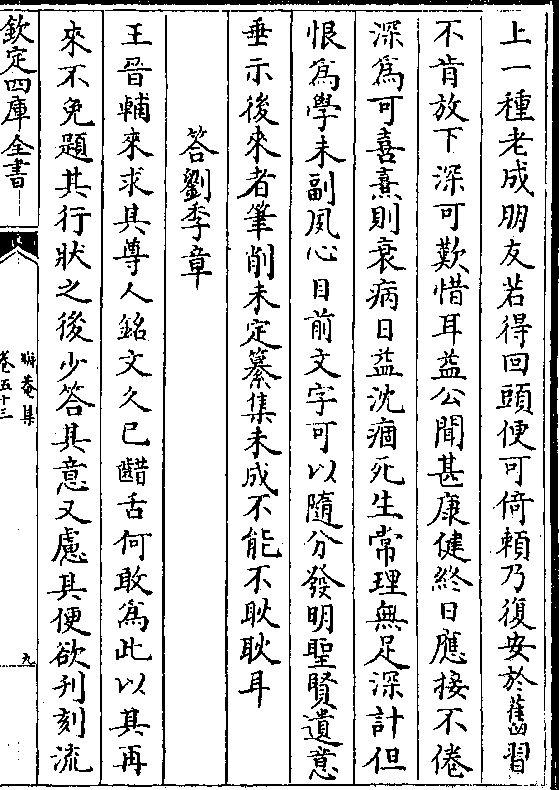 上一種老成朋友若得回頭便可倚賴乃復安於舊習
不肯放下深可歎惜耳益公聞甚康健終日應接不倦
深爲可喜熹則衰病日益沈痼死生常理無足深計但
恨爲學未副夙心目前文字可以隨分發明聖賢遺意
垂示後來者筆削未定纂集未成不能不耿耿耳
答劉季章
王晉輔來求其尊人銘文久已齰舌何敢爲此以其再
來不免題其行狀之後少答其意又慮其便欲刋刻流
欽定四庫全書
晦菴集
卷五十三
九